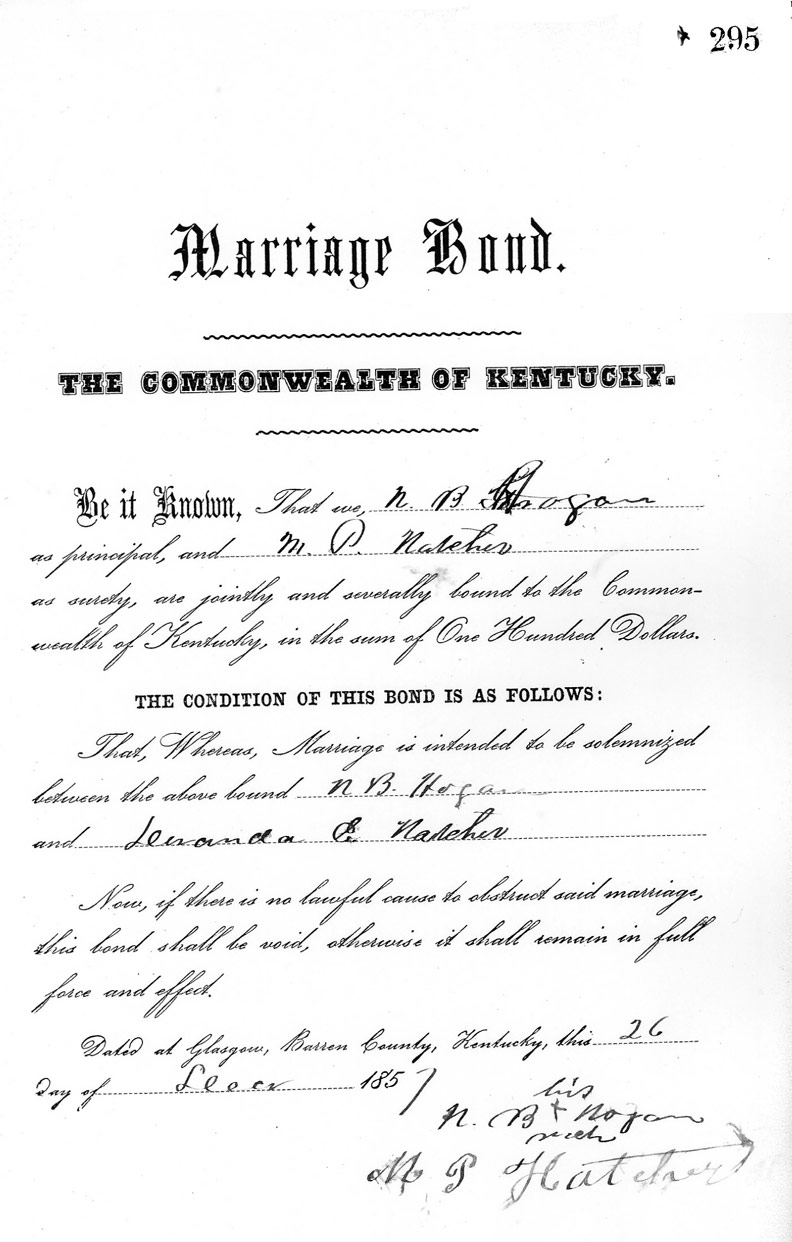 295
Marriage Bond.
THE COMMONWEALTH OF KENTUCKY.
Be it Known, That we, N. B Hogan
as principal, and M. P. Hatcher
as surety, are jointly and severally bound to the Common-
wealth of Kentucky, in the sum of One Hundred Dollars.
THE CONDITION OF THIS BOND IS AS FOLLOWS:
That, Whereas, Marriage is intended to be solemnized
between the above bound N B. Hogan
and E Hatcher
Now, if there is no lawful cause to obstruct said marriage,
this bond shall be void, otherwise it shall remain in full
force and effect.
Dated at Glasgow, Barren County, Kentucky, this 26
day of Decr 1857
his
N. B + Hogan
mark
M P Hatcher